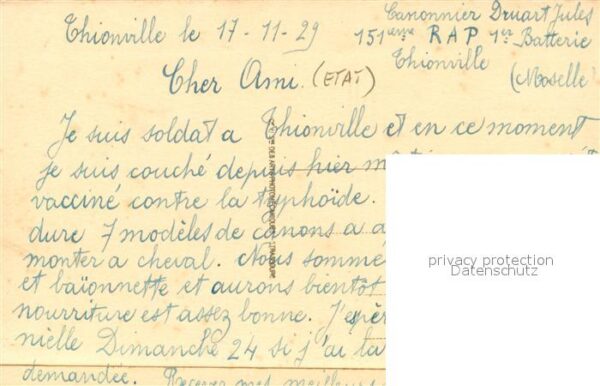 Canonnier Druart Jules
Thionville le 17-11-29 151ème R A P 1er Batterie
Thionville (Moselle
Cher Ami. (ETAT)
Je suis soldat a Thionville et en ce moment
je suis couché depuis hier
vacciné contre la typhoïde.
dure 7 modèles de canons a a
monter a cheval. Nous somme
et baïonnette et aurons bientôt
nourriture est assez bonne. J'espèr
nielle Dimanche 24 si j'ai la
demandée. Recevez mes meilleurs
privacy protection
Datenschutz